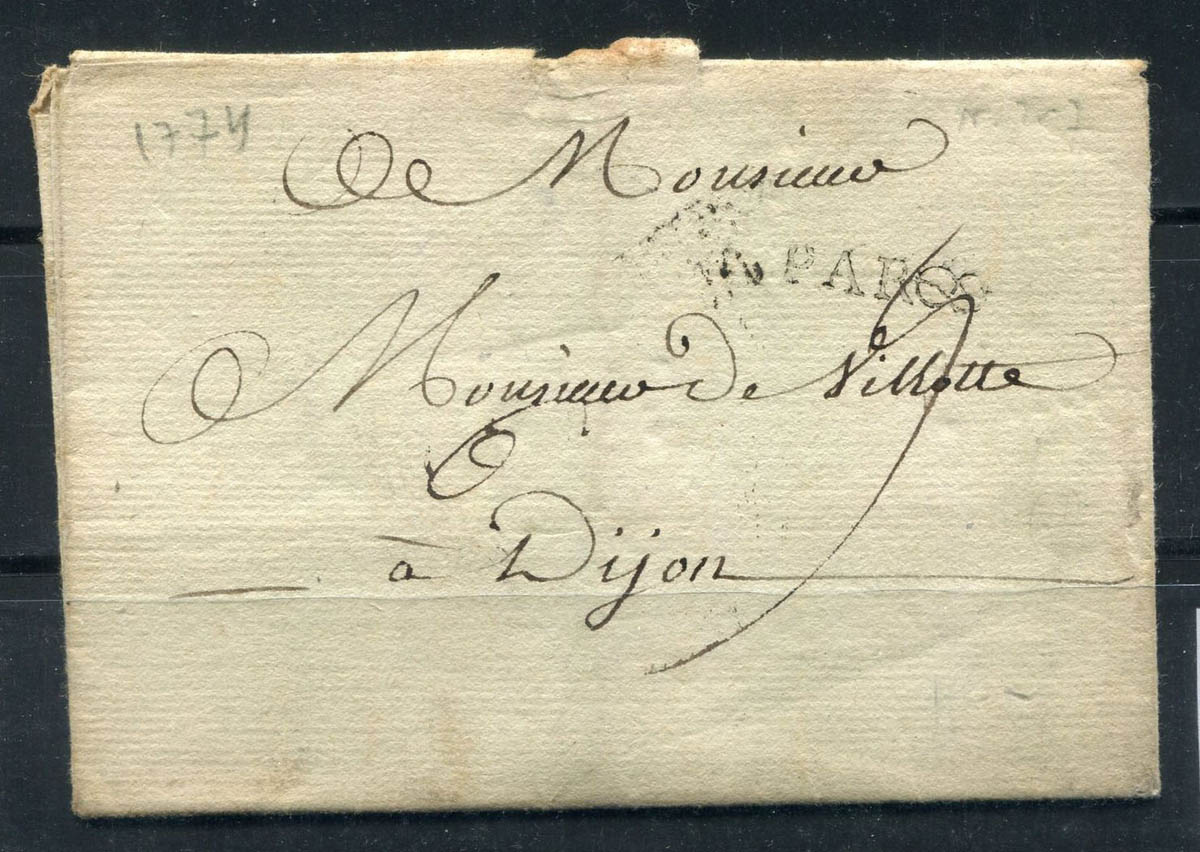 1774
De Monsieur
PARIS
Monsieur De Villotte
à Dijon